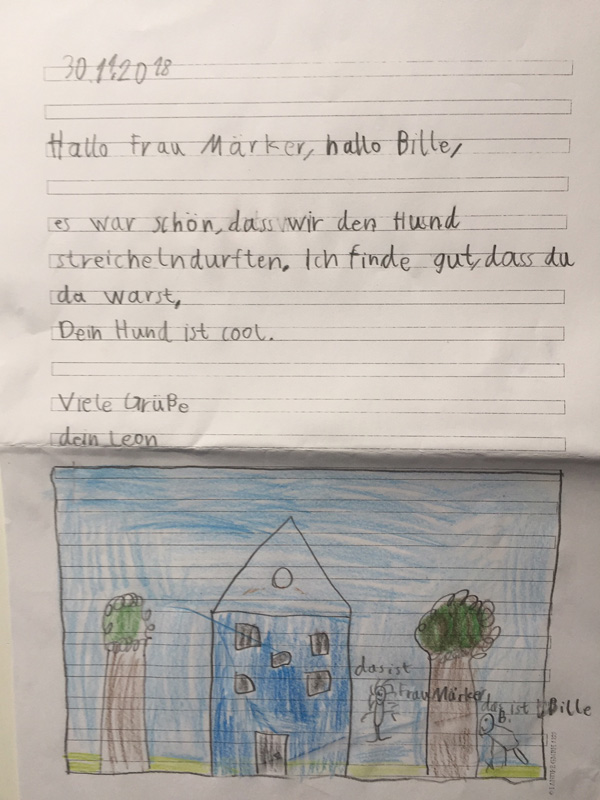 30.11.2018
Hallo Frau Märker, hallo Bille,
es war schön, dass wir den Hund
streichelndurften. Ich finde gut, dass du
da warst,
Dein Hund ist cool.
Viele Grüße
dein Leon
das ist
Frau Märker
das ist Bille
B.